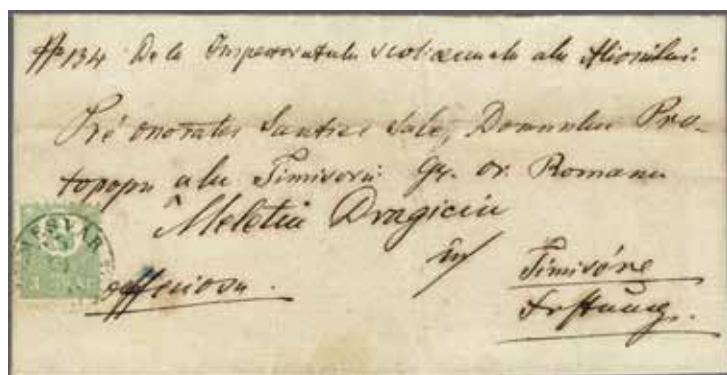 № 134 De la Inspectoratulu scol. cercualu alu
Pré onoratei Santiei Sale, Domnului Pro-
topopu alu Timisorii gr. or. Romanu
Meletiu Dragiciu
in Timisóre
officiosu. Festung.
ESVÁR